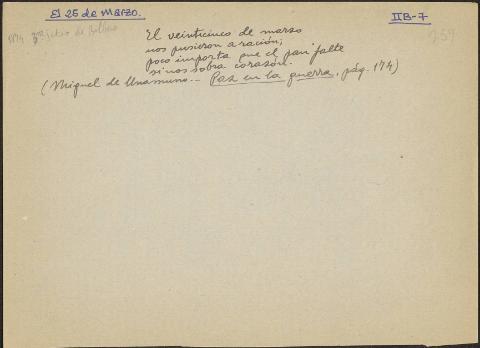 El 25 de Marzo.
IIB-7
1874 Sitio de Bilbao
259
El veinticinco de marzo
nos pusieron a ración;
poco importa que el pan falte
si nos sobra corazón.
(Miguel de Unamuno.- Paz en la guerra, pág. 174)